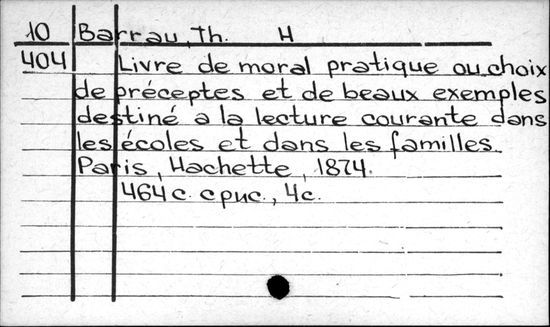 10 Barrau, Th. H
404 Livre de moral pratique ou choix
de préceptes et de beaux exemples
destiné a la lecture courante dans
les écoles et dans les familles.
Paris, Hachette, 1874.
464 c. c рис., 4c.